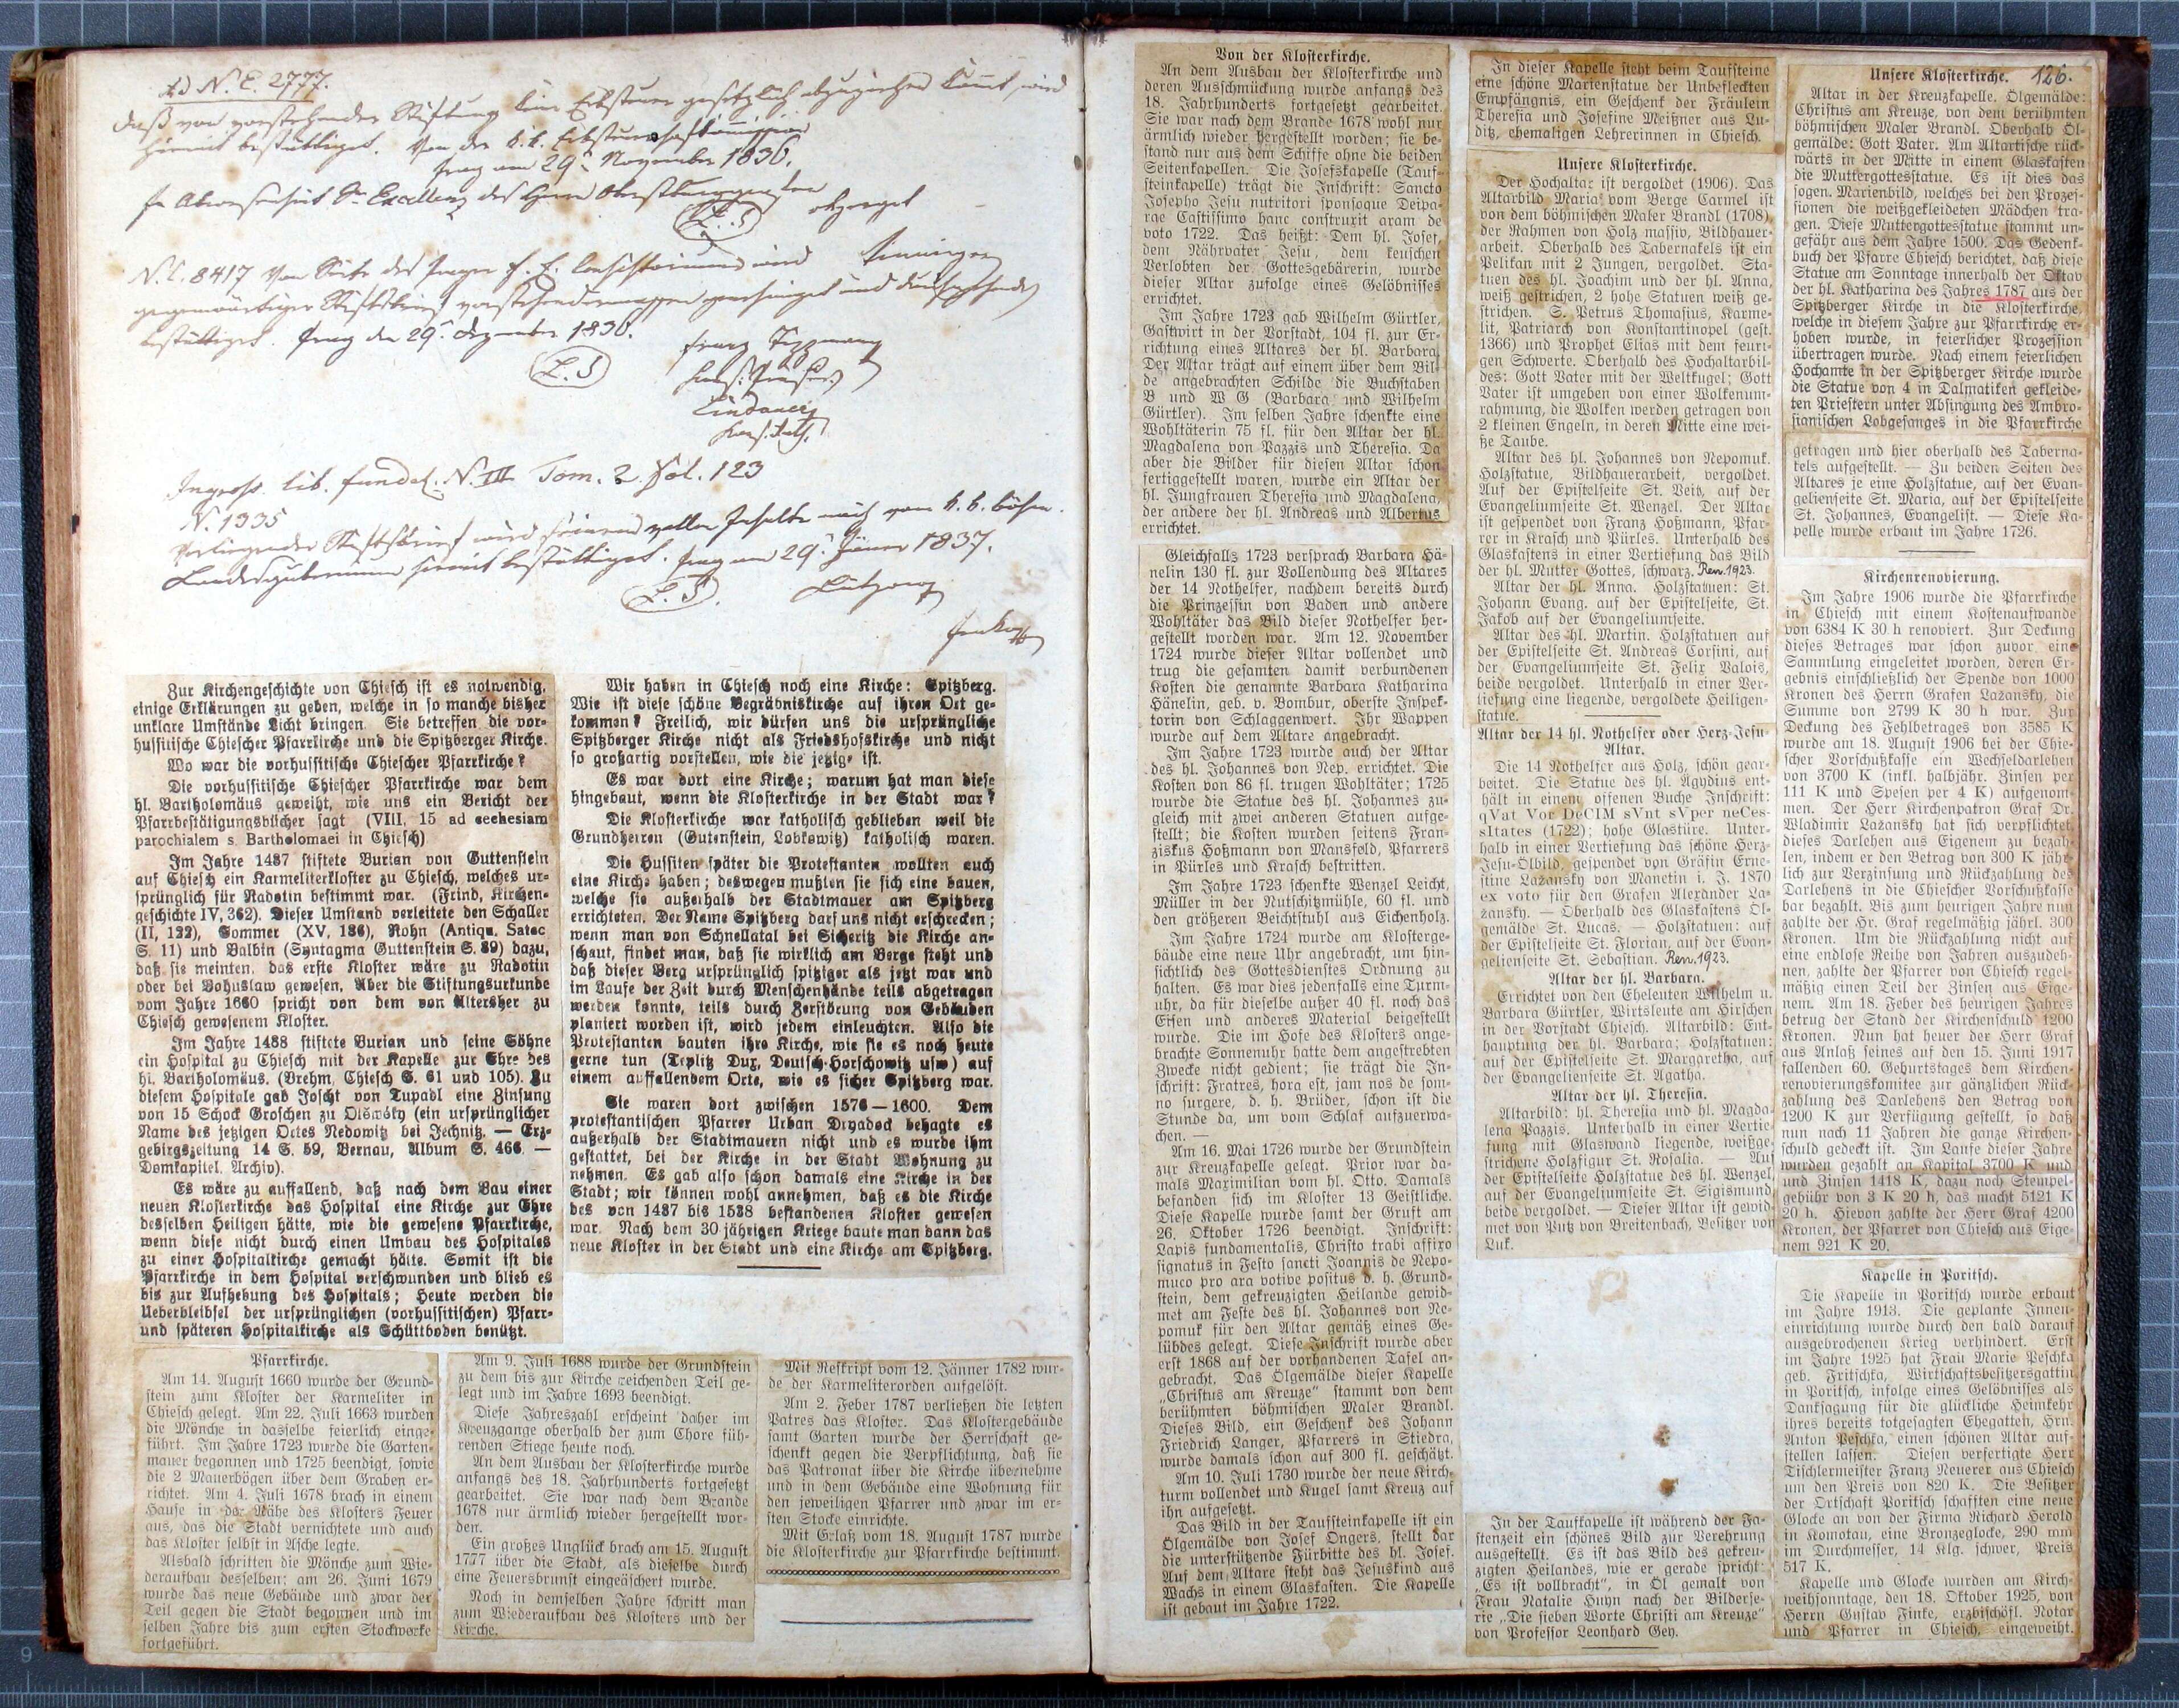 ad N. E. 2777.
Daß von vorstehender Stiftung keine Erbsteuer gesetzlich abzuziehen kömt, wird
hiemit bestättiget. Von der k. k. Erbsteuerhofkommission
Prag am 29. November 1836.
In Abwesenheit Sr Excellenz des Herrn Oberstburggrafen
L. S.
N. C. 8417 Von Seite des Prager f. e. Consistoriums wird
gegenwärtiger Stiftsbrief vorstehendermassen genehmiget und
bestättiget. Prag den 29. Dezember 1836.
L. S.
Franz
Lindauer
Ingross. lib. fundat. N. III Tom. 2. Fol. 123
N. 1335
Vorliegender Stiftsbrief wird seinem vollen Inhalte nach vom k. k. böhm.
Landesgubernium hiemit bestättiget. Prag am 29. Jäner 1837.
L. S.
Zur Kirchengeschichte von Chiesch ist es notwendig,
einige Erklärungen zu geben, welche in so manche bisher
unklare Umstände Licht bringen. Sie betreffen die vor-
hussitische Chiescher Pfarrkirche und die Spitzberger Kirche.
Wo war die vorhussitische Chiescher Pfarrkirche?
Die vorhussitische Chiescher Pfarrkirche war dem
hl. Bartholomäus geweiht, wie uns ein Bericht der
Pfarrbestätigungsbücher sagt (VIII, 15 ad eechesiam
parochialem s. Bartholomaei in Chiesch)
Im Jahre 1487 stiftete Burian von Guttenstein
auf Chiesch ein Karmeliterkloster zu Chiesch, welches ur-
sprünglich für Radotin bestimmt war. (Frind, Kirchen-
geschichte IV, 362). Dieser Umstand verleitete den Schaller
(II, 122), Sommer (XV, 186), Rohn (Antiqu. Satec
S. 11) und Balbin (Syntagma Guttenstein S. 89) dazu,
daß sie meinten, das erste Kloster wäre zu Radotin
oder bei Bohuslaw gewesen. Aber die Stiftungsurkunde
vom Jahre 1660 spricht von dem von Altersher zu
Chiesch gewesenem Kloster.
Im Jahre 1488 stiftete Burian und seine Söhne
ein Hospital zu Chiesch mit der Kapelle zur Ehre des
hl. Bartholomäus. (Brehm, Chiesch S. 61 und 105). Zu
diesem Hospitale gab Joscht von Tupadl eine Zinsung
von 15 Schock Groschen zu Olšwáky (ein ursprünglicher
Name des jetzigen Ortes Nedowitz bei Jechnitz. — Erz-
gebirgszeitung 14 S. 59, Bernau, Album S. 466 —
Domkapitel. Archiv).
Es wäre zu auffallend, daß nach dem Bau einer
neuen Klosterkirche das Hospital eine Kirche zur Ehre
desselben Heiligen hätte, wie die gewesene Pfarrkirche,
wenn diese nicht durch einen Umbau des Hospitales
zu einer Hospitalkirche gemacht hätte. Somit ist die
Pfarrkirche in dem Hospital verschwunden und blieb es
bis zur Aufhebung des Hospitals; Heute werden die
Ueberbleibsel der ursprünglichen (vorhussitischen) Pfarr-
und späteren Hospitalkirche als Schüttboden benützt.
Wir haben in Chiesch noch eine Kirche: Spitzberg.
Wie ist diese schöne Begräbniskirche auf ihren Ort ge-
kommen? Freilich, wir dürfen uns die ursprüngliche
Spitzberger Kirche nicht als Friedhofskirche und nicht
so großartig vorstellen, wie die jetzige ist.
Es war dort eine Kirche; warum hat man diese
hingebaut, wenn die Klosterkirche in der Stadt war?
Die Klosterkirche war katholisch geblieben weil die
Grundherren (Gutenstein, Lobkowitz) katholisch waren.
Die Hussiten später die Protestanten wollten auch
eine Kirche haben; deswegen mußten sie sich eine bauen,
welche sie außerhalb der Stadtmauer am Spitzberg
errichteten. Der Name Spitzberg darf uns nicht erschrecken;
wenn man von Schnellatal bei Sicheritz die Kirche an-
schaut, findet man, daß sie wirklich am Berge steht und
daß dieser Berg ursprünglich spitziger als jetzt war und
im Laufe der Zeit durch Menschenhände teils abgetragen
werden konnte, teils durch Zerstörung von Gebäuden
planiert worden ist, wird jedem einleuchten. Also die
Protestanten bauten ihre Kirche, wie sie es noch heute
gerne tun (Teplitz Dux, Deutsch-Horschowitz usw) auf
einem auffallendem Orte, wie es sicher Spitzberg war.
Sie waren dort zwischen 1576—1600. Dem
protestantischen Pfarrer Urban Dryadock behagte es
außerhalb der Stadtmauern nicht und es wurde ihm
gestattet, bei der Kirche in der Stadt Wohnung zu
nehmen. Es gab also schon damals eine Kirche in der
Stadt; wir können wohl annehmen, daß es die Kirche
des von 1487 bis 1538 bestandenen Kloster gewesen
war. Nach dem 30 jährigen Kriege baute man dann das
neue Kloster in der Stadt und eine Kirche am Spitzberg.
Pfarrkirche.
Am 14. August 1660 wurde der Grund-
stein zum Kloster der Karmeliter in
Chiesch gelegt. Am 22. Juli 1663 wurden
die Mönche in dasselbe feierlich einge-
führt. Im Jahre 1723 wurde die Garten-
mauer begonnen und 1725 beendigt, sowie
die 2 Mauerbögen über dem Graben er-
richtet. Am 4. Juli 1678 brach in einem
Hause in der Nähe des Klosters Feuer
aus, das die Stadt vernichtete und auch
das Kloster selbst in Asche legte.
Alsbald schritten die Mönche zum Wie-
deraufbau desselben; am 26. Juni 1679
wurde das neue Gebäude und zwar der
Teil gegen die Stadt begonnen und im
selben Jahre bis zum ersten Stockwerke
fortgeführt.
Am 9. Juli 1688 wurde der Grundstein
zu dem bis zur Kirche reichenden Teil ge-
legt und im Jahre 1693 beendigt.
Diese Jahreszahl erscheint daher im
Kreuzgange oberhalb der zum Chore füh-
renden Stiege heute noch.
An dem Ausbau der Klosterkirche wurde
anfangs des 18. Jahrhunderts fortgesetzt
gearbeitet. Sie war nach dem Brande
1678 nur ärmlich wieder hergestellt wor-
den.
Ein großes Unglück brach am 15. August
1777 über die Stadt, als dieselbe durch
eine Feuersbrunst eingeäschert wurde.
Noch in demselben Jahre schritt man
zum Wiederaufbau des Klosters und der
Kirche.
Mit Reskript vom 12. Jänner 1782 wur-
de der Karmeliterorden aufgelöst.
Am 2. Feber 1787 verließen die letzten
Patres das Kloster. Das Klostergebäude
samt Garten wurde der Herrschaft ge-
schenkt gegen die Verpflichtung, daß sie
das Patronat über die Kirche übernehme
und in dem Gebäude eine Wohnung für
den jeweiligen Pfarrer und zwar im er-
sten Stocke einrichte.
Mit Erlaß vom 18. August 1787 wurde
die Klosterkirche zur Pfarrkirche bestimmt.
Von der Klosterkirche.
An dem Ausbau der Klosterkirche und
deren Ausschmückung wurde anfangs des
18. Jahrhunderts fortgesetzt gearbeitet.
Sie war nach dem Brande 1678 wohl nur
ärmlich wieder hergestellt worden; sie be-
stand nur aus dem Schiffe ohne die beiden
Seitenkapellen. Die Josefskapelle (Tauf-
steinkapelle) trägt die Inschrift: Sancto
Josepho Jesu nutritori sponsoque Deipa-
rae Castissimo hanc construxit aram de
voto 1722. Das heißt: Dem hl. Josef,
dem Nährvater Jesu, dem keuschen
Verlobten der Gottesgebärerin, wurde
dieser Altar zufolge eines Gelöbnisses
errichtet.
Im Jahre 1723 gab Wilhelm Gürtler,
Gastwirt in der Vorstadt, 104 fl. zur Er-
richtung eines Altares der hl. Barbara.
Der Altar trägt auf einem über dem Bil-
de angebrachten Schilde die Buchstaben
B und W G (Barbara und Wilhelm
Gürtler). Im selben Jahre schenkte eine
Wohltäterin 75 fl. für den Altar der hl.
Magdalena von Pazzis und Theresia. Da
aber die Bilder für diesen Altar schon
fertiggestellt waren, wurde ein Altar der
hl. Jungfrauen Theresia und Magdalena,
der andere der hl. Andreas und Albertus
errichtet.
Gleichfalls 1723 versprach Barbara Hä-
nelin 130 fl. zur Vollendung des Altares
der 14 Nothelfer, nachdem bereits durch
die Prinzessin von Baden und andere
Wohltäter das Bild dieser Nothelfer her-
gestellt worden war. Am 12. November
1724 wurde dieser Altar vollendet und
trug die gesamten damit verbundenen
Kosten die genannte Barbara Katharina
Hänelin, geb. v. Bombur, oberste Inspek-
torin von Schlaggenwert. Ihr Wappen
wurde auf dem Altare angebracht.
Im Jahre 1723 wurde auch der Altar
des hl. Johannes von Nep. errichtet. Die
Kosten von 86 fl. trugen Wohltäter; 1725
wurde die Statue des hl. Johannes zu-
gleich mit zwei anderen Statuen aufge-
stellt; die Kosten wurden seitens Fran-
ziskus Hoßmann von Mansfeld, Pfarrers
in Pürles und Krasch bestritten.
Im Jahre 1723 schenkte Wenzel Leicht,
Müller in der Nutschitzmühle, 60 fl. und
den größeren Beichtstuhl aus Eichenholz.
Im Jahre 1724 wurde am Klosterge-
bäude eine neue Uhr angebracht, um hin-
sichtlich des Gottesdienstes Ordnung zu
halten. Es war dies jedenfalls eine Turm-
uhr, da für dieselbe außer 40 fl. noch das
Eisen und anderes Material beigestellt
wurde. Die im Hofe des Klosters ange-
brachte Sonnenuhr hatte dem angestrebten
Zwecke nicht gedient; sie trägt die In-
schrift: Fratres, hora est, jam nos de som-
no surgere, d. h. Brüder, schon ist die
Stunde da, um vom Schlaf aufzuerwa-
chen. —
Am 16. Mai 1726 wurde der Grundstein
zur Kreuzkapelle gelegt. Prior war da-
mals Maximilian vom hl. Otto. Damals
befanden sich im Kloster 13 Geistliche.
Diese Kapelle wurde samt der Gruft am
26. Oktober 1726 beendigt. Inschrift:
Lapis fundamentalis, Christo trabi affixo
signatus in Festo sancti Joannis de Nepo-
muco pro ara votive positus d. h. Grund-
stein, dem gekreuzigten Heilande gewid-
met am Feste des hl. Johannes von Ne-
pomuk für den Altar gemäß eines Ge-
lübdes gelegt. Diese Inschrift wurde aber
erst 1868 auf der vorhandenen Tafel an-
gebracht. Das Ölgemälde dieser Kapelle
„Christus am Kreuze" stammt von dem
berühmten böhmischen Maler Brandl.
Dieses Bild, ein Geschenk des Johann
Friedrich Langer, Pfarrers in Stiedra,
wurde damals schon auf 300 fl. geschätzt.
Am 10. Juli 1730 wurde der neue Kirch-
turm vollendet und Kugel samt Kreuz auf
ihn aufgesetzt.
Das Bild in der Taufsteinkapelle ist ein
Ölgemälde von Josef Ongers, stellt dar
die unterstützende Fürbitte des hl. Josef.
Auf dem Altare steht das Jesuskind aus
Wachs in einem Glaskasten. Die Kapelle
ist gebaut im Jahre 1722.
In dieser Kapelle steht beim Taufsteine
eine schöne Marienstatue der Unbefleckten
Empfängnis, ein Geschenk der Fräulein
Theresia und Josefine Meißner aus Lu-
ditz, ehemaligen Lehrerinnen in Chiesch.
Unsere Klosterkirche.
Der Hochaltar ist vergoldet (1906). Das
Altarbild Maria vom Berge Carmel ist
von dem böhmischen Maler Brandl (1708)
der Rahmen von Holz massiv, Bildhauer-
arbeit. Oberhalb des Tabernakels ist ein
Pelikan mit 2 Jungen, vergoldet. Sta-
tuen des hl. Joachim und der hl. Anna,
weiß gestrichen, 2 hohe Statuen weiß ge-
strichen. S. Petrus Thomasius, Karme-
lit, Patriarch von Konstantinopel (gest.
1366) und Prophet Elias mit dem feuri-
gen Schwerte. Oberhalb des Hochaltarbil-
des: Gott Vater mit der Weltkugel; Gott
Vater ist umgeben von einer Wolkenum-
rahmung, die Wolken werden getragen von
2 kleinen Engeln, in deren Mitte eine wei-
ße Taube.
Altar des hl. Johannes von Nepomuk.
Holzstatue, Bildhauerarbeit, vergoldet.
Auf der Epistelseite St. Veit, auf der
Evangeliumseite St. Wenzel. Der Altar
ist gespendet von Franz Hoßmann, Pfar-
rer in Krasch und Pürles. Unterhalb des
Glaskastens in einer Vertiefung das Bild
der hl. Mutter Gottes, schwarz. Ren. 1923.
Altar der hl. Anna. Holzstatuen: St.
Johann Evang. auf der Epistelseite, St.
Jakob auf der Evangeliumseite.
Altar des hl. Martin. Holzstatuen auf
der Epistelseite St. Andreas Corsini, auf
der Evangeliumseite St. Felix Valois,
beide vergoldet. Unterhalb in einer Ver-
tiefung eine liegende, vergoldete Heiligen-
statue.
Altar der 14 hl. Nothelfer oder Herz-Jesu-
Altar.
Die 14 Nothelfer aus Holz, schön gear-
beitet. Die Statue des hl. Agydius ent-
hält in einem offenen Buche Inschrift:
qVat Vor DeCIM sVnt sVper neCes-
sItates (1722); hohe Glastüre. Unter-
halb in einer Vertiefung das schöne Herz-
Jesu-Ölbild, gespendet von Gräfin Erne-
stine Lažansky von Manetin i. J. 1870
ex voto für den Grafen Alexander La-
žansky. — Oberhalb des Glaskastens Öl-
gemälde St. Lucas. — Holzstatuen: auf
der Epistelseite St. Florian, auf der Evan-
gelienseite St. Sebastian. Ren. 1923.
Altar der hl. Barbara.
Errichtet von den Eheleuten Wilhelm u.
Barbara Gürtler, Wirtsleute am Hirschen
in der Vorstadt Chiesch. Altarbild: Ent-
hauptung der hl. Barbara; Holzstatuen:
auf der Epistelseite St. Margaretha, auf
der Evangelienseite St. Agatha.
Altar der hl. Theresia.
Altarbild: hl. Theresia und hl. Magda-
lena Pazzis. Unterhalb in einer Vertie-
fung mit Glaswand liegende, weißge-
strichene Holzfigur St. Rosalia. — Auf
der Epistelseite Holzstatue des hl. Wenzel,
auf der Evangeliumseite St. Sigismund,
beide vergoldet. — Dieser Altar ist gewid-
met von Putz von Breitenbach, Besitzer von
Luk.
In der Taufkapelle ist während der Fa-
stenzeit ein schönes Bild zur Verehrung
ausgestellt. Es ist das Bild des gekreu-
zigten Heilandes, wie er gerade spricht:
„Es ist vollbracht", in Öl gemalt von
Frau Natalie Huyn nach der Bilderse-
rie „Die sieben Worte Christi am Kreuze"
von Professor Leonhard Gey.
126.
Unsere Klosterkirche.
Altar in der Kreuzkapelle. Ölgemälde:
Christus am Kreuze, von dem berühmten
böhmischen Maler Brandl. Oberhalb Öl-
gemälde: Gott Vater. Am Altartische rück-
wärts in der Mitte in einem Glaskasten
die Muttergottesstatue. Es ist dies das
sogen. Marienbild, welches bei den Prozes-
sionen die weißgekleideten Mädchen tra-
gen. Diese Muttergottesstatue stammt un-
gefähr aus dem Jahre 1500. Das Gedenk-
buch der Pfarre Chiesch berichtet, daß diese
Statue am Sonntage innerhalb der Oktav
der hl. Katharina des Jahres 1787 aus der
Spitzberger Kirche in die Klosterkirche,
welche in diesem Jahre zur Pfarrkirche er-
hoben wurde, in feierlicher Prozession
übertragen wurde. Nach einem feierlichen
Hochamte in der Spitzberger Kirche wurde
die Statue von 4 in Dalmatiken gekleide-
ten Priestern unter Absingung des Ambro-
sianischen Lobgesanges in die Pfarrkirche
getragen und hier oberhalb des Taberna-
kels aufgestellt. — Zu beiden Seiten des
Altares je eine Holzstatue, auf der Evan-
gelienseite St. Maria, auf der Epistelseite
St. Johannes, Evangelist. — Diese Ka-
pelle wurde erbaut im Jahre 1726.
Kirchenrenovierung.
Im Jahre 1906 wurde die Pfarrkirche
in Chiesch mit einem Kostenaufwande
von 6384 K 30 h renoviert. Zur Deckung
dieses Betrages war schon zuvor eine
Sammlung eingeleitet worden, deren Er-
gebnis einschließlich der Spende von 1000
Kronen des Herrn Grafen Lažansky, die
Summe von 2799 K 30 h war. Zur
Deckung des Fehlbetrages von 3585 K
wurde am 18. August 1906 bei der Chie-
scher Vorschußkasse ein Wechseldarlehen
von 3700 K (inkl. halbjähr. Zinsen per
111 K und Spesen per 4 K) aufgenom-
men. Der Herr Kirchenpatron Graf Dr.
Wladimir Lažansky hat sich verpflichtet,
dieses Darlehen aus Eigenem zu bezah-
len, indem er den Betrag von 300 K jähr-
lich zur Verzinsung und Rückzahlung des
Darlehens in die Chiescher Vorschußkasse
bar bezahlt. Bis zum heurigen Jahre nun
zahlte der Hr. Graf regelmäßig jährl. 300
Kronen. Um die Rückzahlung nicht auf
eine endlose Reihe von Jahren auszudeh-
nen, zahlte der Pfarrer von Chiesch regel-
mäßig einen Teil der Zinsen aus Eige-
nem. Am 18. Feber des heurigen Jahres
betrug der Stand der Kirchenschuld 1200
Kronen. Nun hat heuer der Herr Graf
aus Anlaß seines auf den 15. Juni 1917
fallenden 60. Geburtstages dem Kirchen-
renovierungskomitee zur gänzlichen Rück-
zahlung des Darlehens den Betrag von
1200 K zur Verfügung gestellt, so daß
nun nach 11 Jahren die ganze Kirchen-
schuld gedeckt ist. Im Laufe dieser Jahre
wurden gezahlt an Kapital 3700 K und
und Zinsen 1418 K, dazu noch Stempel-
gebühr von 3 K 20 h, das macht 5121 K
20 h. Hievon zahlte der Herr Graf 4200
Kronen, der Pfarrer von Chiesch aus Eige-
nem 921 K 20.
Kapelle in Poritsch.
Die Kapelle in Poritsch wurde erbaut
im Jahre 1913. Die geplante Innen-
einrichtung wurde durch den bald darauf
ausgebrochenen Krieg verhindert. Erst
im Jahre 1925 hat Frau Marie Peschka
geb. Fritschka, Wirtschaftsbesitzersgattin
in Poritsch, infolge eines Gelöbnisses als
Danksagung für die glückliche Heimkehr
ihres bereits totgesagten Ehegatten, Hrn.
Anton Peschka, einen schönen Altar auf-
stellen lassen. Diesen verfertigte Herr
Tischlermeister Franz Neuerer aus Chiesch
um den Preis von 820 K. Die Besitzer
der Ortschaft Poritsch schafften eine neue
Glocke an von der Firma Richard Herold
in Komotau, eine Bronzeglocke, 290 mm
im Durchmesser, 14 Klg. schwer, Preis
517 K.
Kapelle und Glocke wurden am Kirch-
weihsonntage, den 18. Oktober 1925, von
Herrn Gustav Finke, erzbischöfl. Notar
und Pfarrer in Chiesch, eingeweiht.
9